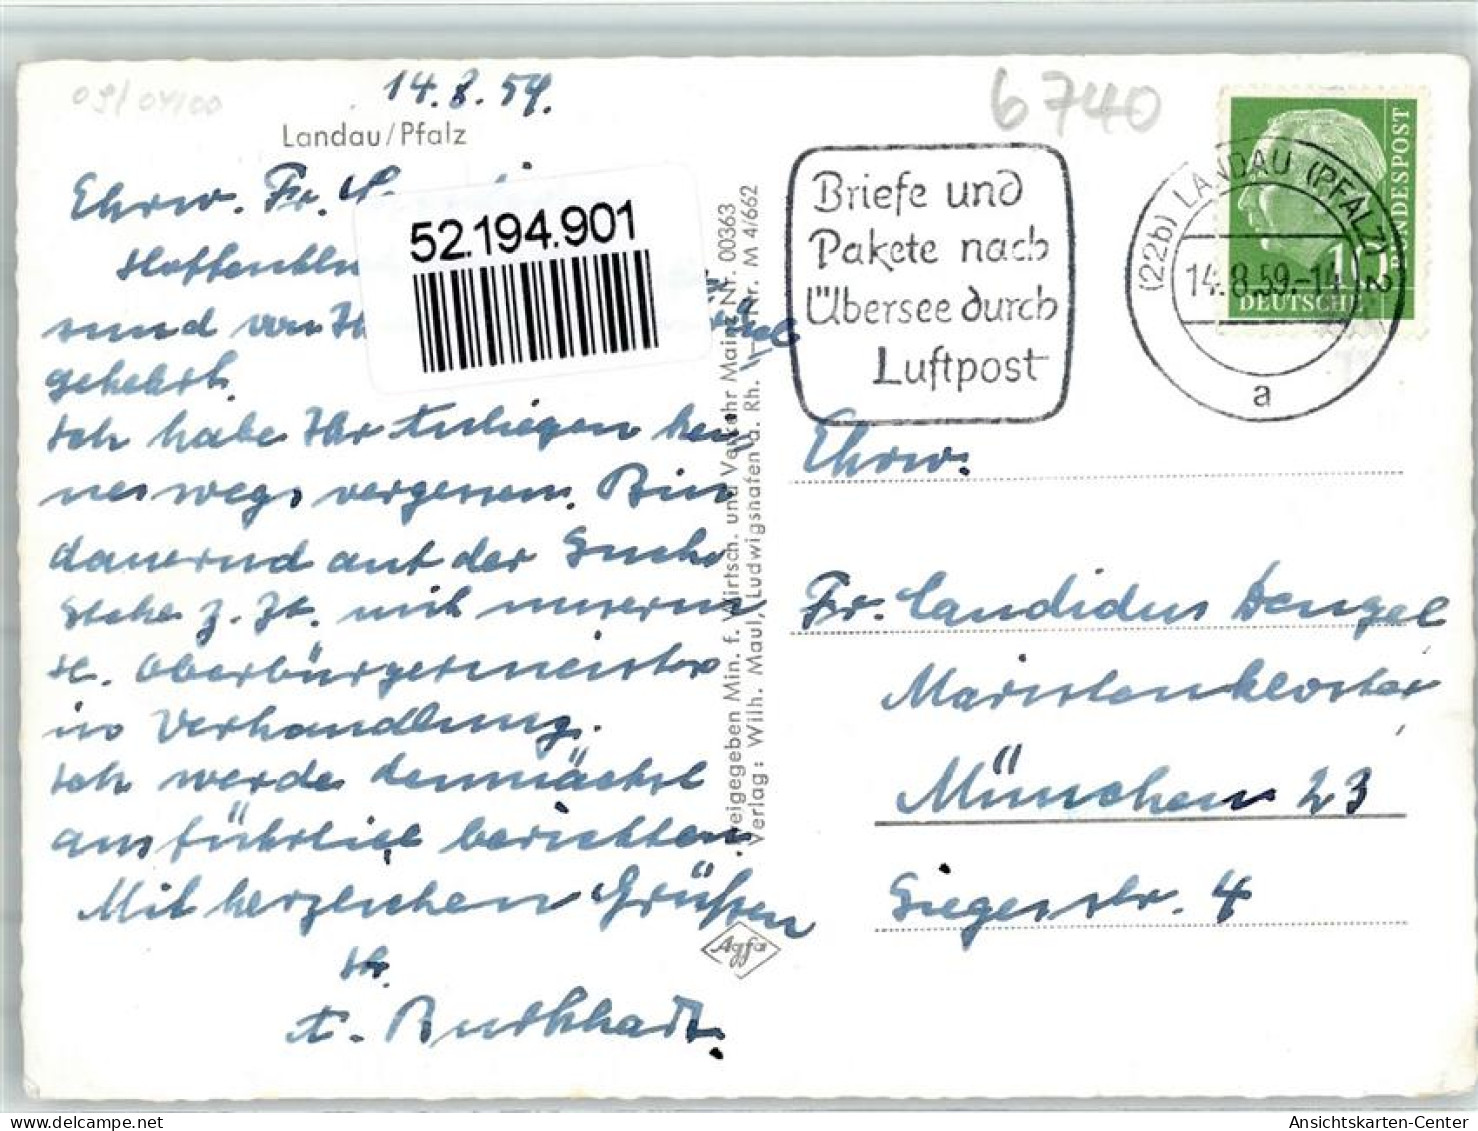 14.8.59.
Landau/Pfalz
Ehrw. Fr.
Hoffentlich
sind von
gekehrt.
Ich habe Ihr Anliegen kei
neswegs vergessen. Bin
dauernd auf der Suche
Stehe z. Zt. mit unserm
H. Oberbürgermeister
in Verhandlung.
Ich werde demnächst
ausführlich berichten.
Mit herzlichen Grüßen
Ihr
A. Burkhardt.
52.194.901
Freigegeben Min. f. Wirtsch. und Verkehr Mainz Nr. 00363
Verlag: Wilh. Maul, Ludwigshafen a. Rh. — Nr. M 4/662
Agfa
6740
Briefe und
Pakete nach
Übersee durch
Luftpost
(22b) LANDAU (PFALZ) 2
14.8.59.-14
a
DEUTSCHE
BUNDESPOST
10
Ehrw.
Fr. Candidus Dengel
Maristenkloster
München 23
Siegesstr. 4
Ansichtskarten-Center